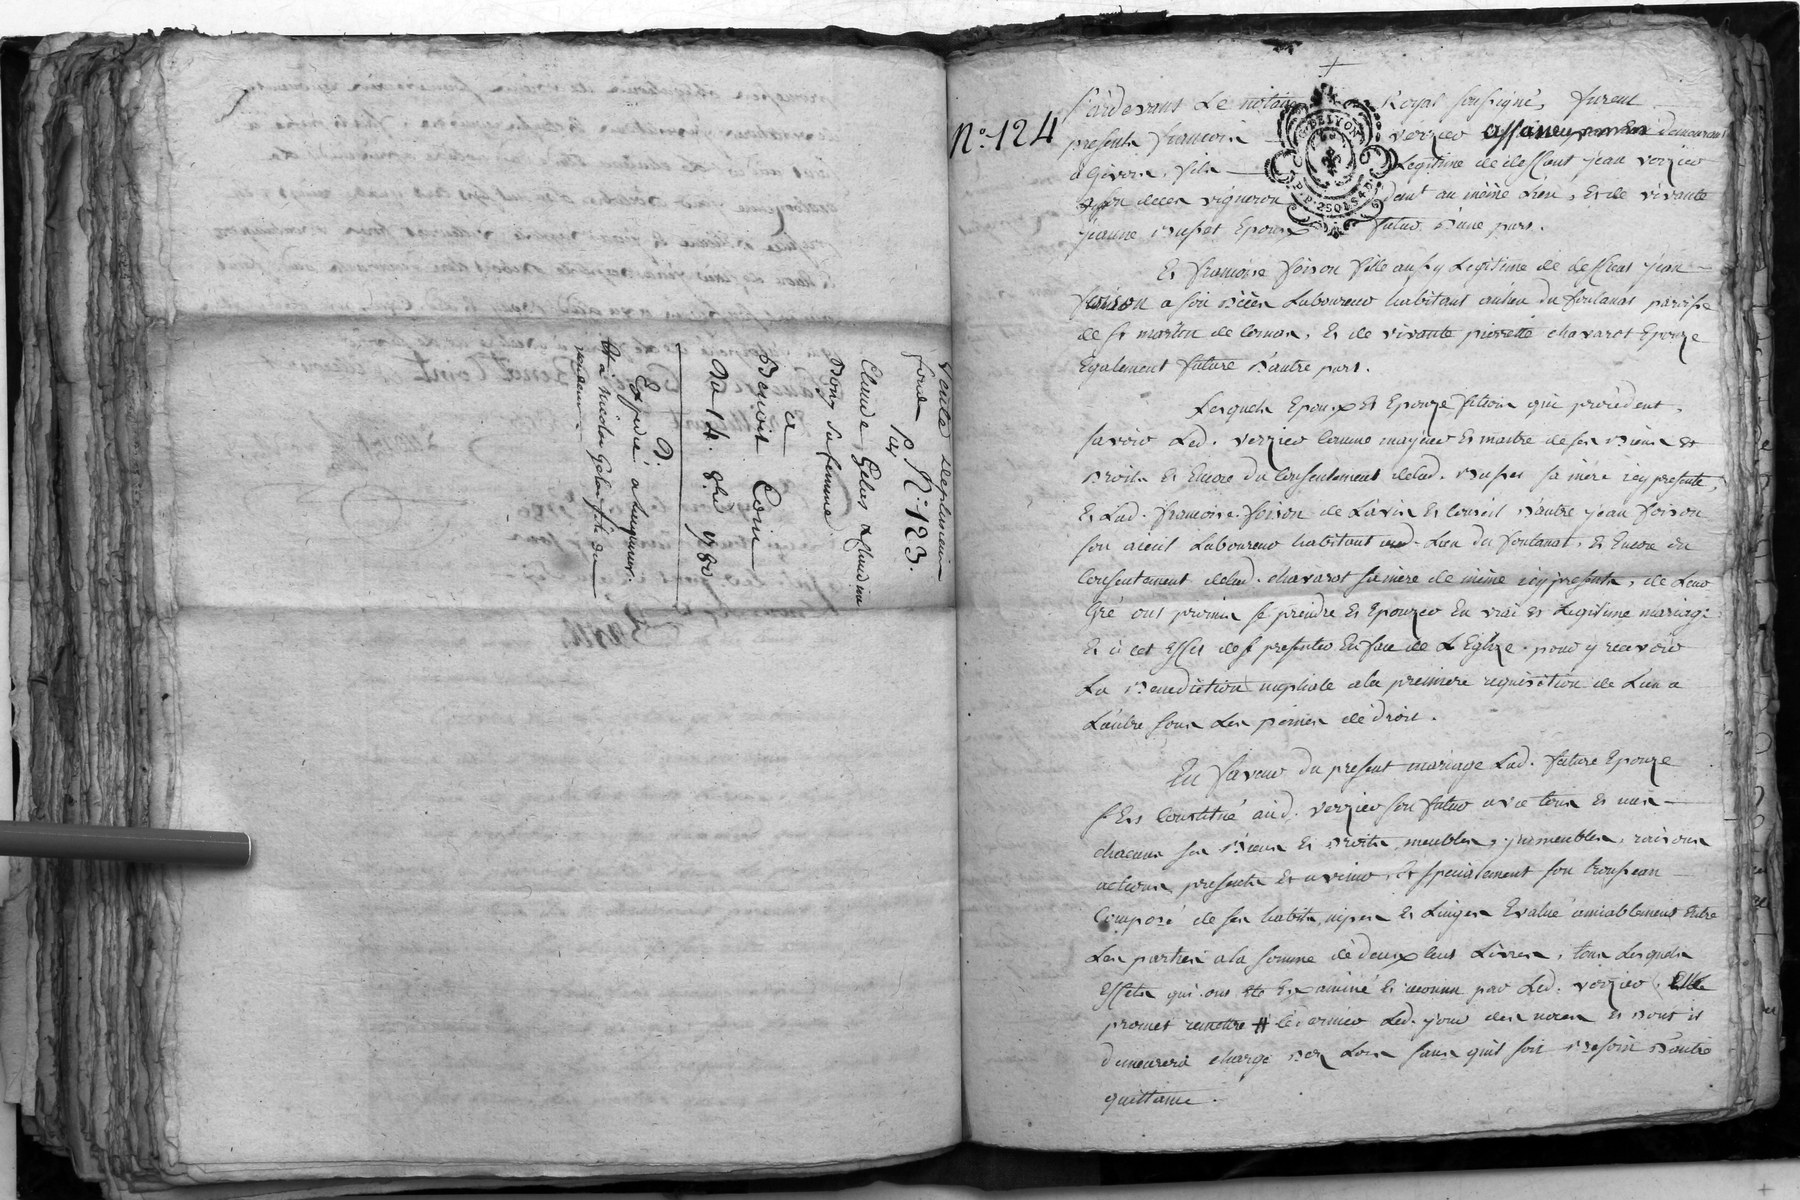 vente de plusieurs
fond P. N.° 123.
par
Claude Gelas & Claudine
Bony sa femme
a
Benoit Coin
Du 14. 8bre 1780
Expedié a l'acquereur.
Et à nicolas Gelas fils du
vendeur.
N.° 124
Pardevant Le notaire Royal soussigné, furent
presents françois verzier demeurant
a Givors, fils Legitime de deffunt jean verzier
a son deces vigneron dud. au même Lieu, Et de vivante
jeanne Busset Epoux futur D'une part.
G. DE LYON
P. P. 2 SOLS 4 D.
Et françoise foison fille aussy Legitime de deffunt jean
foison a son Déces Laboureur habitant aulieu du fontanas paroisse
de st martin de cornas, Et de vivante pierrette chavarot Epouze
Egalement future D'autre part.
Lesquels Epoux Et Epouze futurs qui procedent,
savoir Led. verzier comme majeur Et maitre de ses Biens Et
Droits Et Encore du Consentement delad. Busset sa mere icy presente,
Et Lad. françoise foison de L'avis Et Conseil D'autre jean foison
son aieul Laboureur habitant aud. Lieu du fontanat, Et Encore du
Consentement delad. chavarot sa mere de même icy presente, de Leur
Gré ont promis se prendre Et Epouzer En vrai Et Legitime mariage
Et à cet Effet de se presenter En face de L'Eglize pour y recevoir
La Benediction nuptiale a la premiere requisition de L'un a
L'autre sous Les peines de droit.
En faveur du present mariage Lad. future Epouze
s'Est Constitué aud. verzier son futur avec tous Et uns
chacuns ses Biens Et Droits, meubles, immeubles, raisons
actions, presents Et avenir, Et specialement son trousseau
Composé de ses habits, nipes Et Linges Evalué amiablement Entre
Les parties a la somme de deux cens Livres, tous Lesquels
Effets qui ont Eté Examiné Et reconnu par Led. verzier, Elle
promet remettre # Led. jour des noces Et dont il
demeurera chargé Des Lors sans qu'il soit Besoin D'autre
quittance.